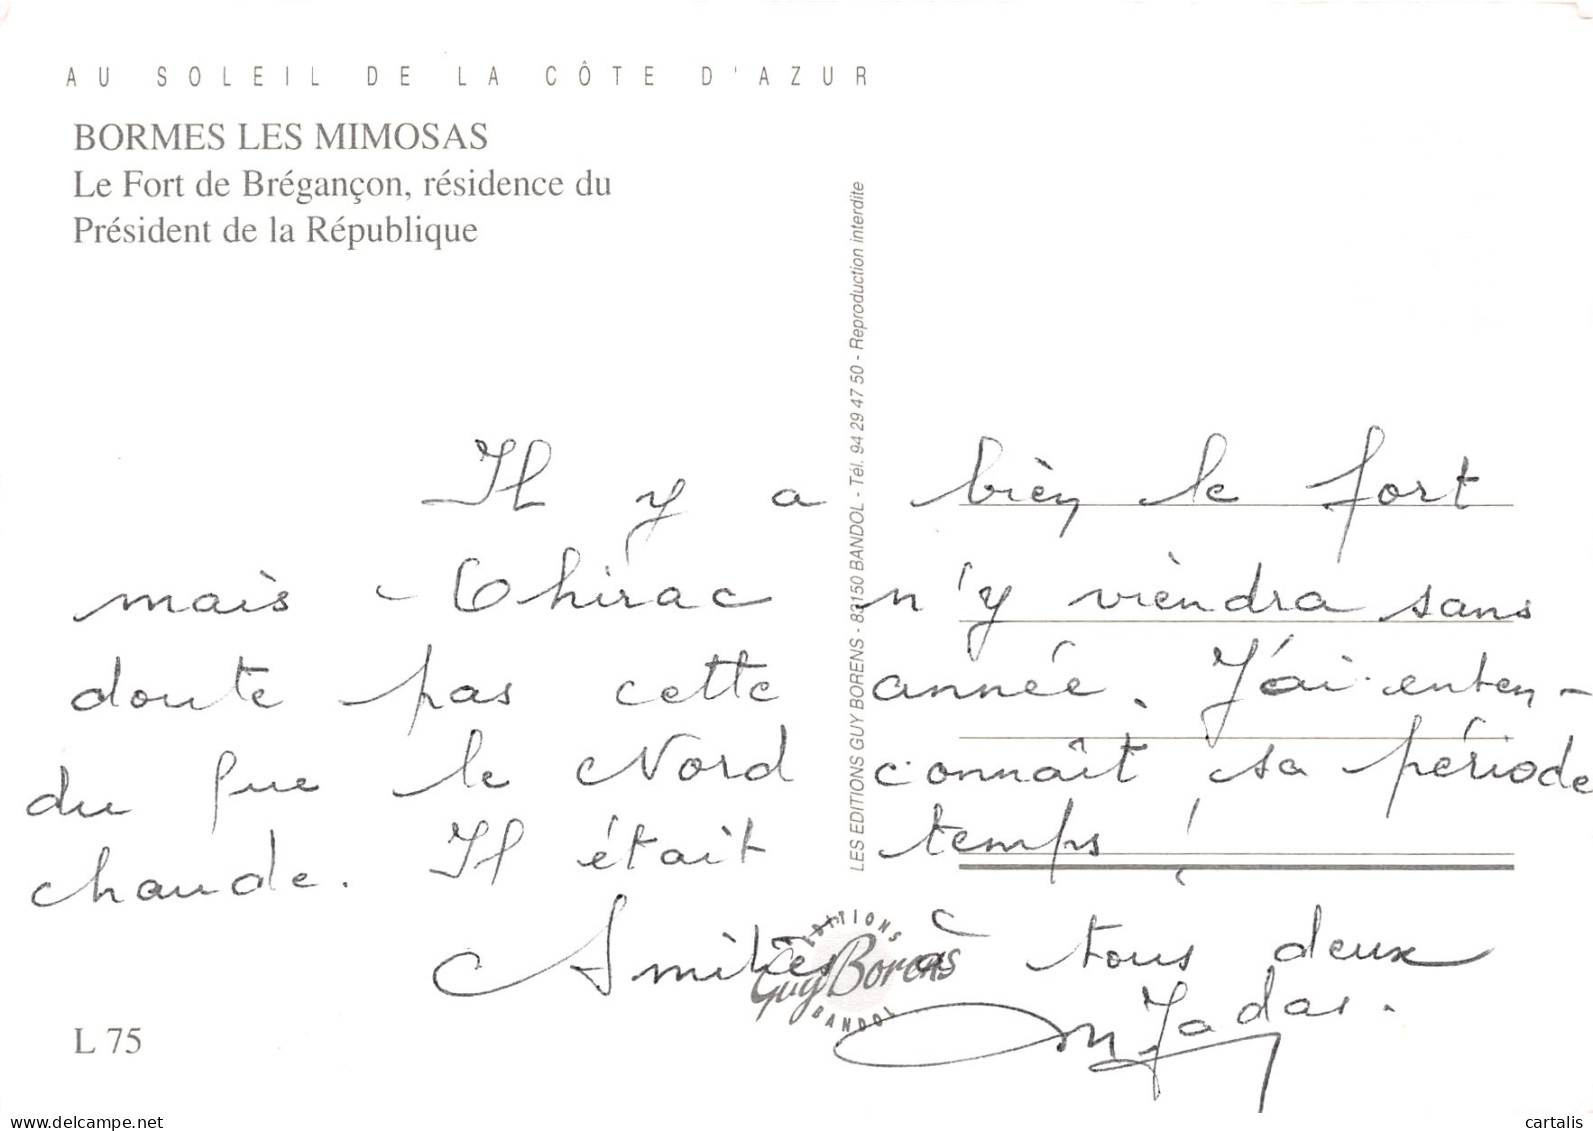 AU SOLEIL DE LA CÔTE D'AZUR
BORMES LES MIMOSAS
Le Fort de Brégançon, résidence du
Président de la République
LES EDITIONS GUY BORENS - 83150 BANDOL - Tél. 94 29 47 50 - Reproduction interdite
Il y a bien le fort
mais Chirac n'y viendra sans
doute pas cette année. J'ai enten-
du que le Nord connaît sa période
chaude. Il était temps !
Amitiés à tous deux
EDITIONS
Guy Borens
BANDOL
L 75
delcampe.net
cartalis